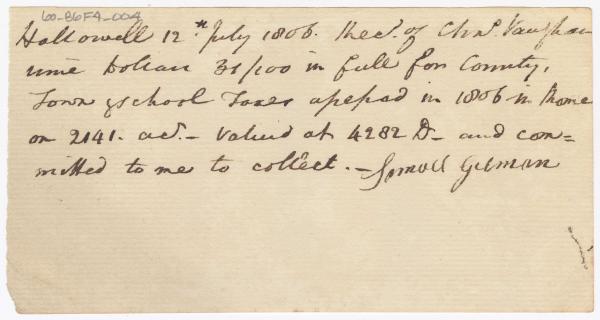 60-B6F4-004
Hallowell 12th July 1806. Recd. of Chas. Vaughan
nine Dollars 31/100 in full for County,
Town & school Taxes assessed in 1806 in Rome
on 2141. acs. - valued at 4282 D - and com=
mitted to me to collect. - Samuel Gilman